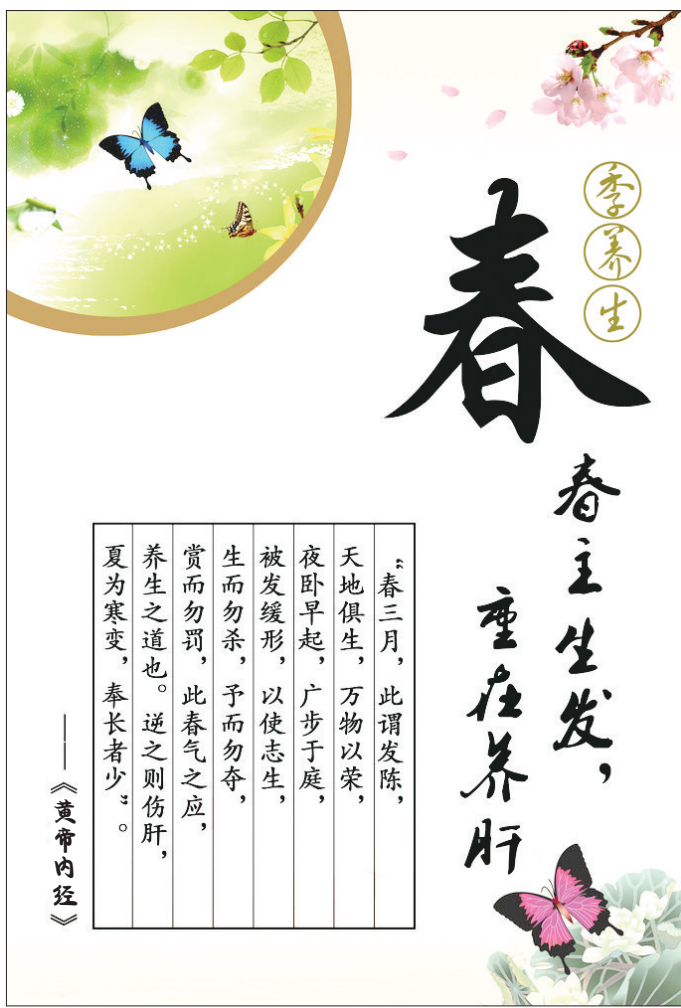 春
季养生
春主生发，
重在养肝
“春三月，此谓发陈，
天地俱生，万物以荣，
夜卧早起，广步于庭，
被发缓形，以使志生，
生而勿杀，予而勿夺，
赏而勿罚，此春气之应，
养生之道也。逆之则伤肝，
夏为寒变，奉长者少”。
——《黄帝内经》